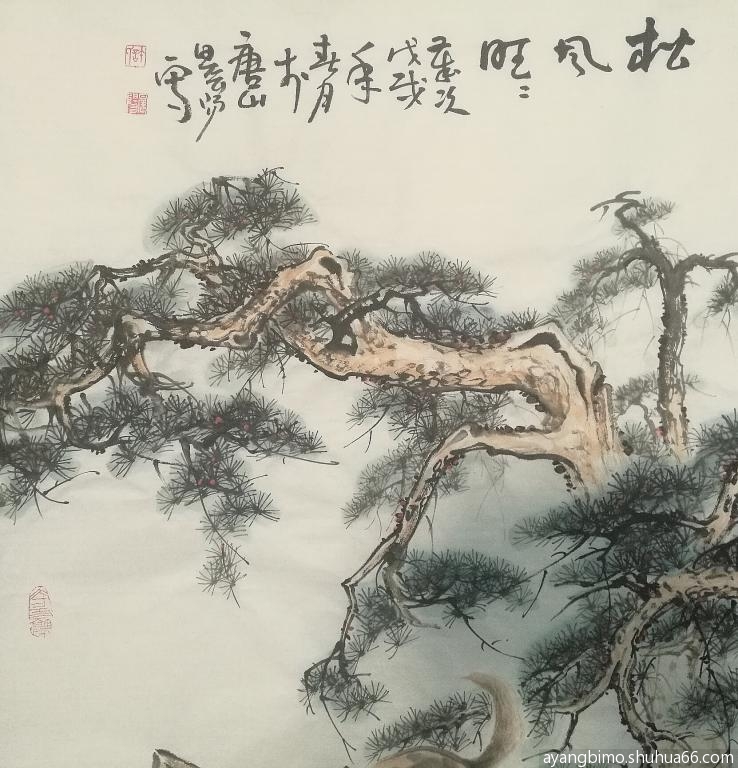 松风旺〻
歲次
戊戌
年
春月
於
唐山
寫
ayangbimo.shuhua66.com